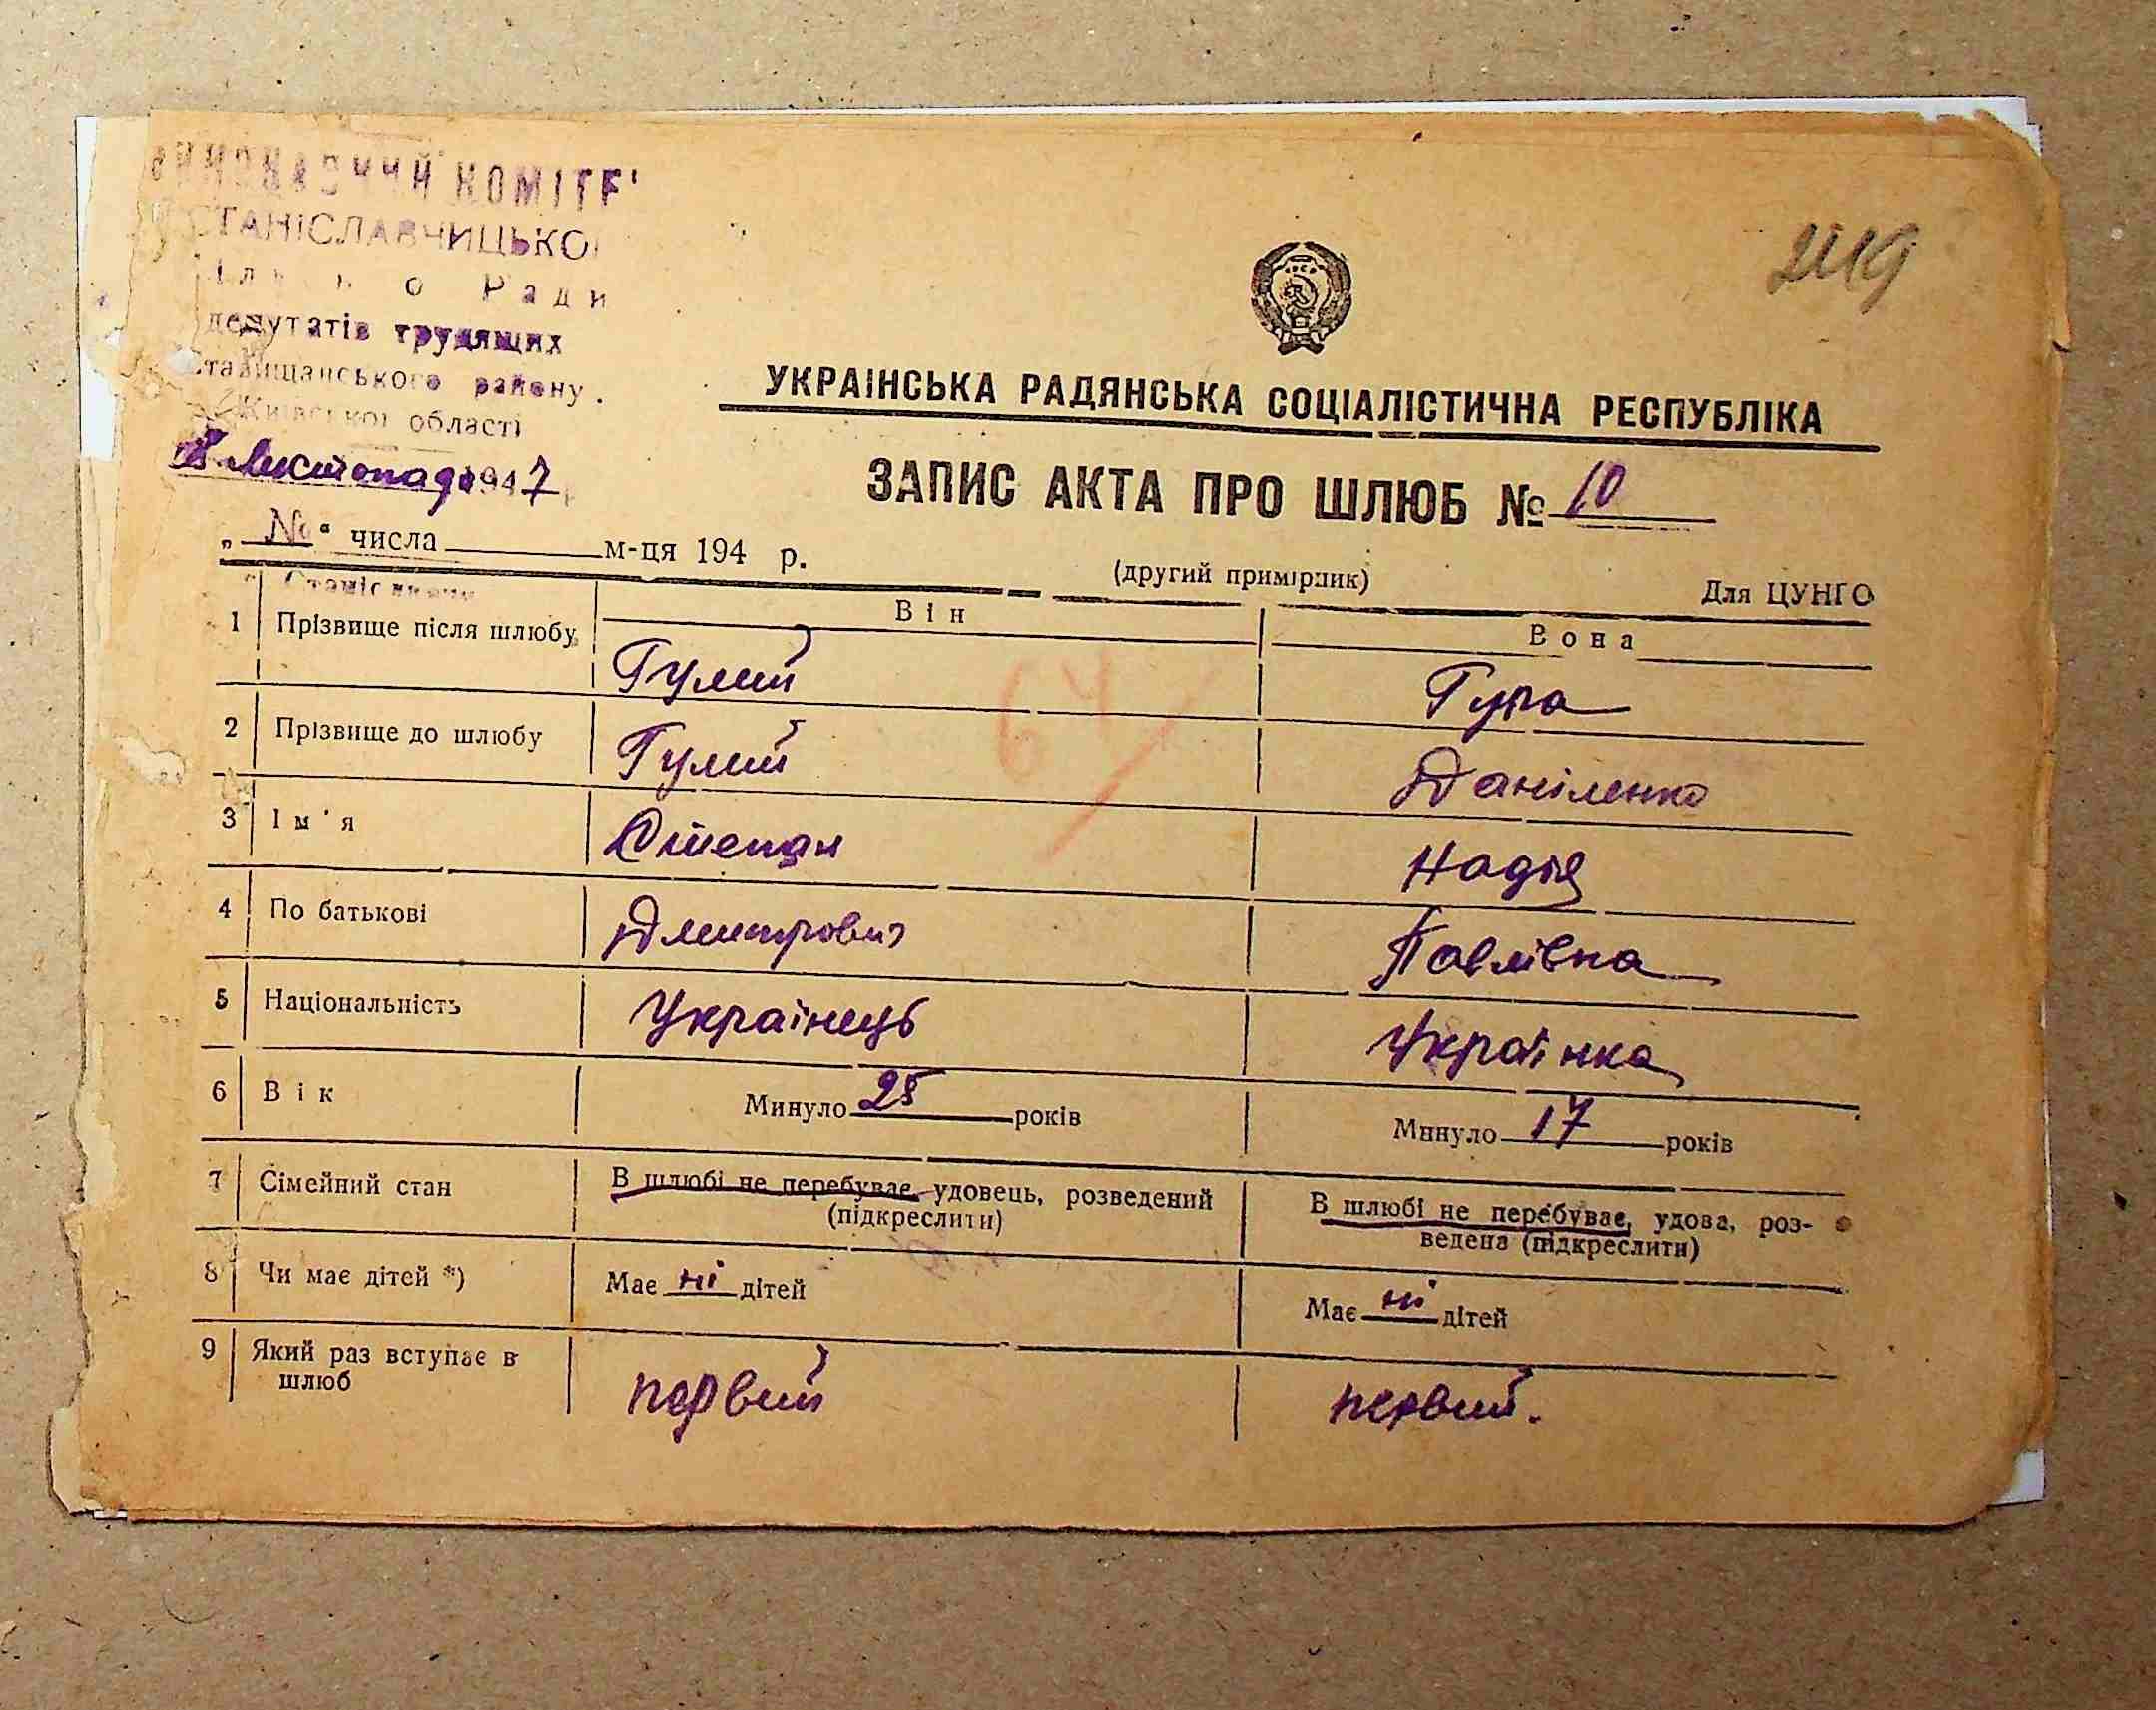 КОМІТЕ
СТАНІСЛАВЧИЦЬКО
Ради
депутатів трудящих
Ставищанського району.
Київської області
Листопада 1947
№
УКРАЇНСЬКА РАДЯНСЬКА СОЦІАЛІСТИЧНА РЕСПУБЛІКА
ЗАПИС АКТА ПРО ШЛЮБ № 10
„ “ числа м-ця 194 р.
(другий примірник)
Для ЦУНГО
Він
Вона
1 Прізвище після шлюбу Гулий Гура
2 Прізвище до шлюбу Гулий Даніленко
3 Ім'я Степан Надія
4 По батькові Дмитрович Павлівна
5 Національність Українець Українка
6 Вік Минуло 25 років Минуло 17 років
7 Сімейний стан В шлюбі не перебуває, удовець, розведений В шлюбі не перебуває, удова, роз-
(підкреслити) ведена (підкреслити)
8 Чи має дітей *) Має ні дітей Має ні дітей
9 Який раз вступає в первий первий.
шлюб
64